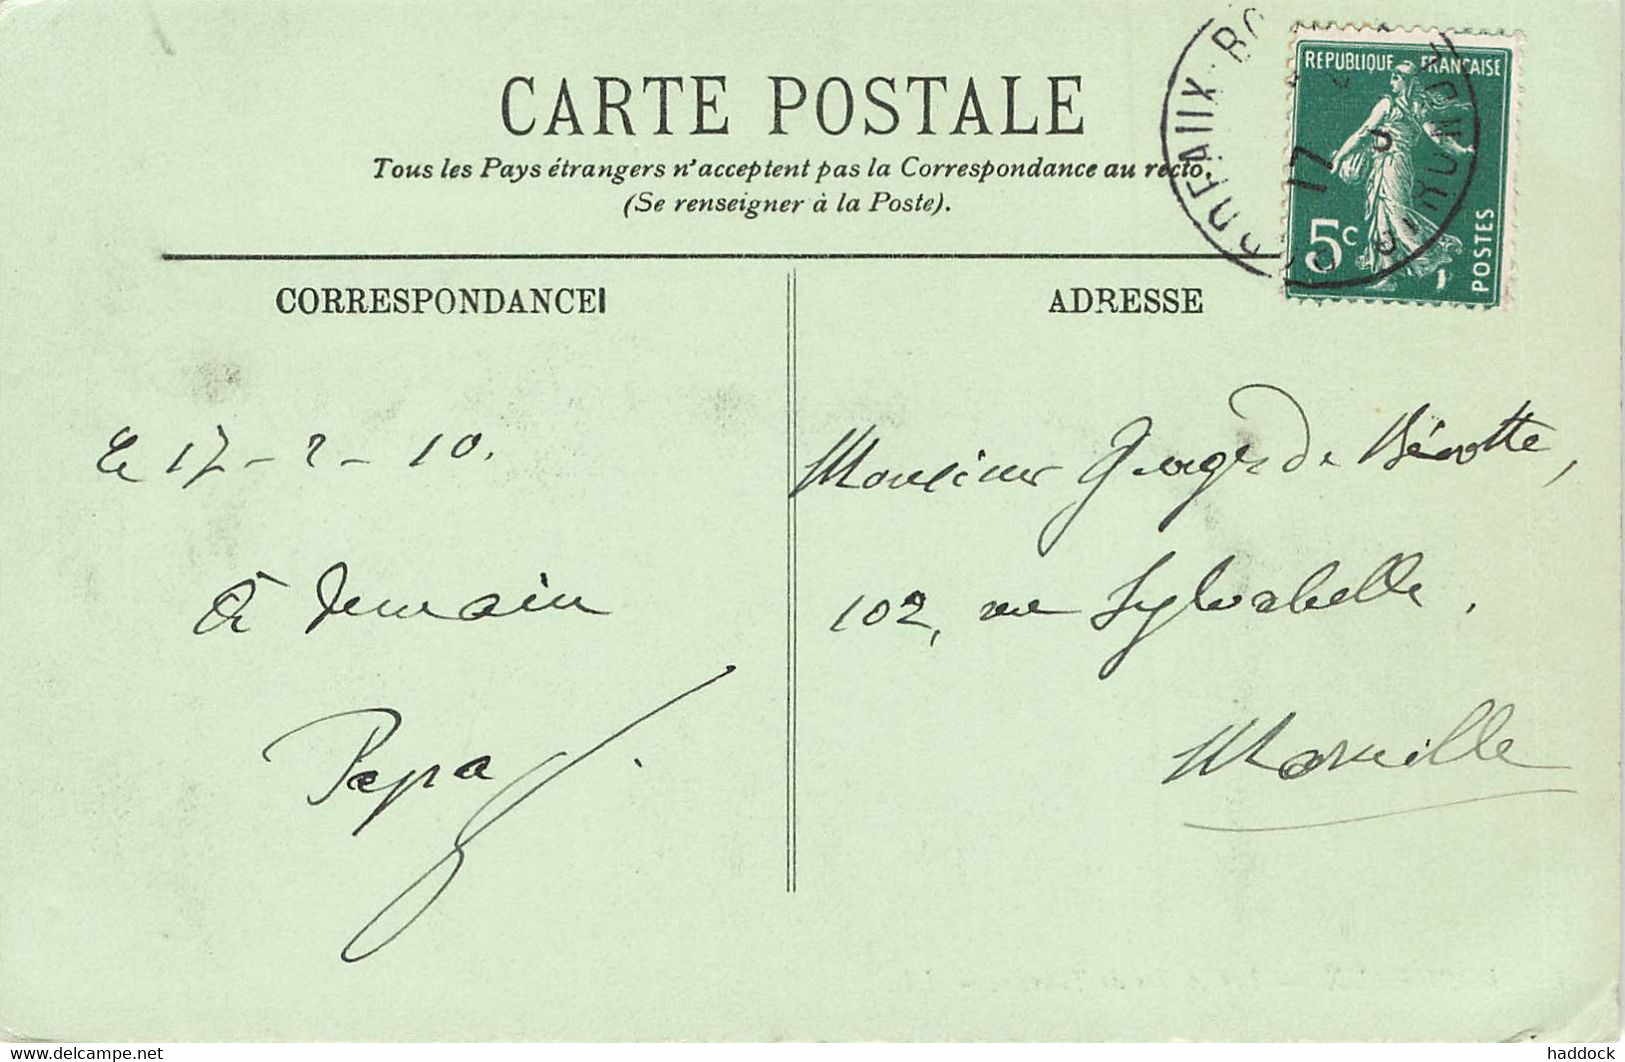 CARTE POSTALE
Tous les Pays étrangers n'acceptent pas la Correspondance au recto.
(Se renseigner à la Poste).
REPUBLIQUE FRANCAISE
5c
POSTES
17
CORRESPONDANCE
ADRESSE
le 17 - 2 - 10.
à demain
Papa
Monsieur Georges de Bévotte,
102, rue Sylvabelle.
Marseille
www.delcampe.net
haddock